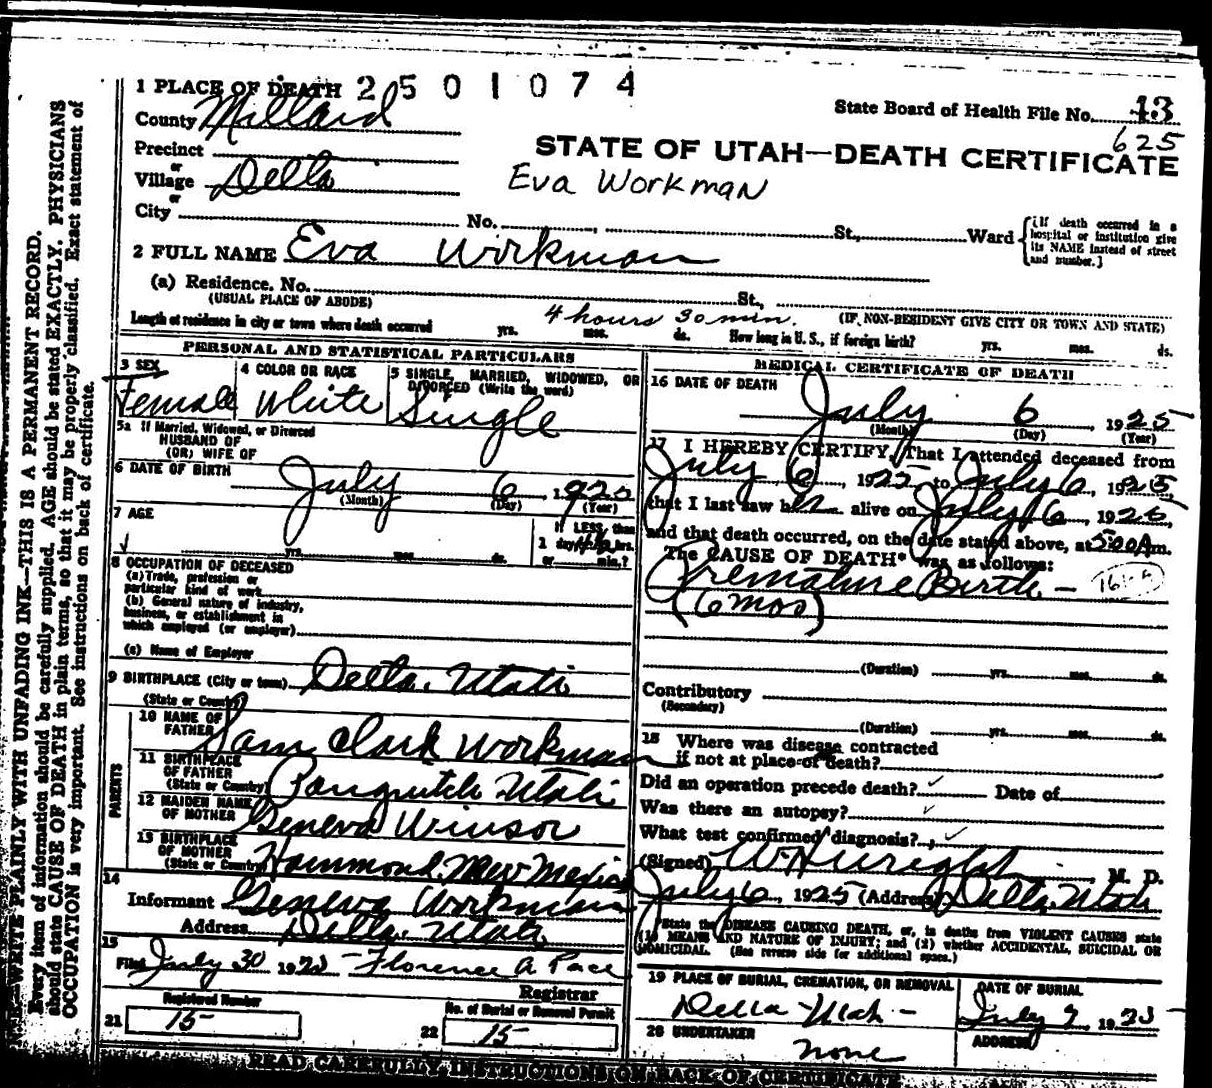 1 PLACE OF DEATH 2501074
State Board of Health File No. 43
County Millard
625
Precinct
STATE OF UTAH—DEATH CERTIFICATE
or
Village Delta
Eva Workman
or
City No. St., Ward {(If death occurred in a hospital or institution give its NAME instead of street and number.)
2 FULL NAME Eva Workman
(a) Residence. No. St.,
(USUAL PLACE OF ABODE) (IF NON-RESIDENT GIVE CITY OR TOWN AND STATE)
Length of residence in city or town where death occurred yrs. 4 hours mos. 30 min. ds. How long in U. S., if foreign birth? yrs. mos. ds.
PERSONAL AND STATISTICAL PARTICULARS
3 SEX
Female
4 COLOR OR RACE
White
5 SINGLE, MARRIED, WIDOWED, OR DIVORCED (Write the word)
Single
5a If Married, Widowed, or Divorced
HUSBAND OF
(OR) WIFE OF
6 DATE OF BIRTH July 6, 1925
(Month) (Day) (Year)
7 AGE
yrs. mos. ds.
If LESS than
1 day hrs.
or min.?
8 OCCUPATION OF DECEASED
(a) Trade, profession or
particular kind of work
(b) General nature of industry,
business, or establishment in
which employed (or employer)
(c) Name of Employer
9 BIRTHPLACE (City or town) Delta, Utah
(State or Country)
PARENTS
10 NAME OF FATHER Sam Clark Workman
11 BIRTHPLACE OF FATHER (State or Country) Panguitch Utah
12 MAIDEN NAME OF MOTHER Geneva Winsor
13 BIRTHPLACE OF MOTHER (State or Country) Hammond, New Mexico
14
Informant Geneva Workman
Address Delta, Utah
15
Filed July 30 1925 Florence A Pace
Registrar
Registered Number
21 15
No. of Burial or Removal Permit
22 15
MEDICAL CERTIFICATE OF DEATH
16 DATE OF DEATH
July 6, 1925
(Month) (Day) (Year)
17 I HEREBY CERTIFY, That I attended deceased from
July 6, 1925 to July 6, 1925
that I last saw her alive on July 6, 1925,
and that death occurred, on the date stated above, at 5:00 A m.
The CAUSE OF DEATH* was as follows:
Premature Birth -
(6 mos)
(Duration) yrs. mos. ds.
Contributory
(Secondary)
(Duration) yrs. mos. ds.
18 Where was disease contracted
if not at place of death?
Did an operation precede death? Date of
Was there an autopsy?
What test confirmed diagnosis?
(Signed) M. D.
July 6, 1925 (Address) Delta, Utah
*State the DISEASE CAUSING DEATH, or, in deaths from VIOLENT CAUSES state
(1) MEANS AND NATURE OF INJURY; and (2) whether ACCIDENTAL, SUICIDAL OR
HOMICIDAL. (See reverse side for additional space.)
19 PLACE OF BURIAL, CREMATION, OR REMOVAL
Delta Utah -
DATE OF BURIAL
July 1925
20 UNDERTAKER
none
ADDRESS
READ CAREFULLY INSTRUCTIONS ON BACK OF CERTIFICATE
WRITE PLAINLY WITH UNFADING INK—THIS IS A PERMANENT RECORD.
Every item of information should be carefully supplied. AGE should be stated EXACTLY. PHYSICIANS
should state CAUSE OF DEATH in plain terms, so that it may be properly classified. Exact statement of
OCCUPATION is very important. See instructions on back of certificate.